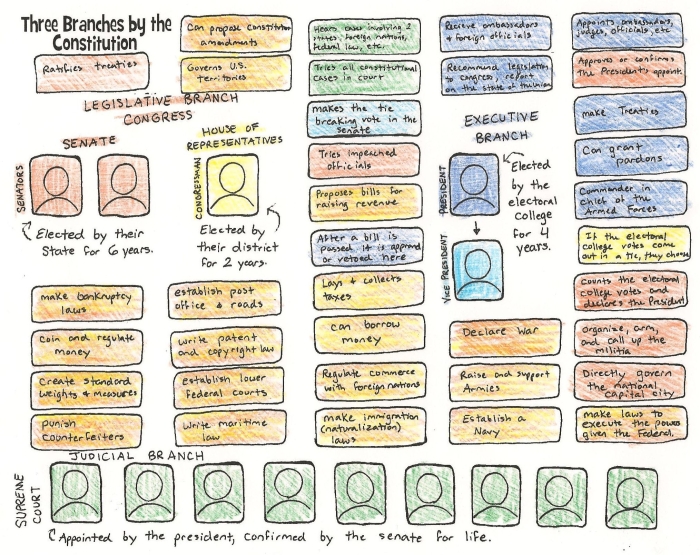 Three Branches by the
Constitution
Ratifies treaties
Can propose Constitution
amendments
Governs U.S.
Territories
LEGISLATIVE BRANCH
CONGRESS
SENATE
HOUSE OF
REPRESENTATIVES
SENATORS
CONGRESSMAN
Elected by their
State for 6 years.
Elected by
their district
for 2 years.
Hears cases involving 2
states, foreign nations,
federal law, etc.
Tries all constitutional
cases in court
makes the tie
breaking vote in the
senate
Tries impeached
officials
Proposes bills for
raising revenue
After a bill is
passed it is approved
or vetoed here
Lays & collects
taxes
can borrow
money
Regulate commerce
with foreign nations
make immigration
(naturalization)
laws
Recieve ambassadors
& foreign officials
Recommend legislation
to congress, report
on the state of the union
EXECUTIVE
BRANCH
PRESIDENT
Elected
by the
electoral
college
for 4
years.
VICE PRESIDENT
Declare war
Raise and support
Armies
Establish a
Navy
Appoints ambassadors,
judges, officials, etc
Approves or confirms
the President's appoints
make Treaties
Can grant
pardons
Commander in
chief of the
Armed Forces
If the electoral
college votes come
out in a tie, they choose
Counts the electoral
college votes and
declares the President
organize, arm,
and call up the
militia
Directly govern
the national
capital city
make laws to
execute the powers
given the Federal.
make bankruptcy
laws
Coin and regulate
money
Create standard
weights & measures
punish
counterfeiters
establish post
office & roads
write patent
and copyright law
establish lower
Federal courts
Write maritime
law
JUDICIAL BRANCH
SUPREME
COURT
Appointed by the president, confirmed by the senate for life.